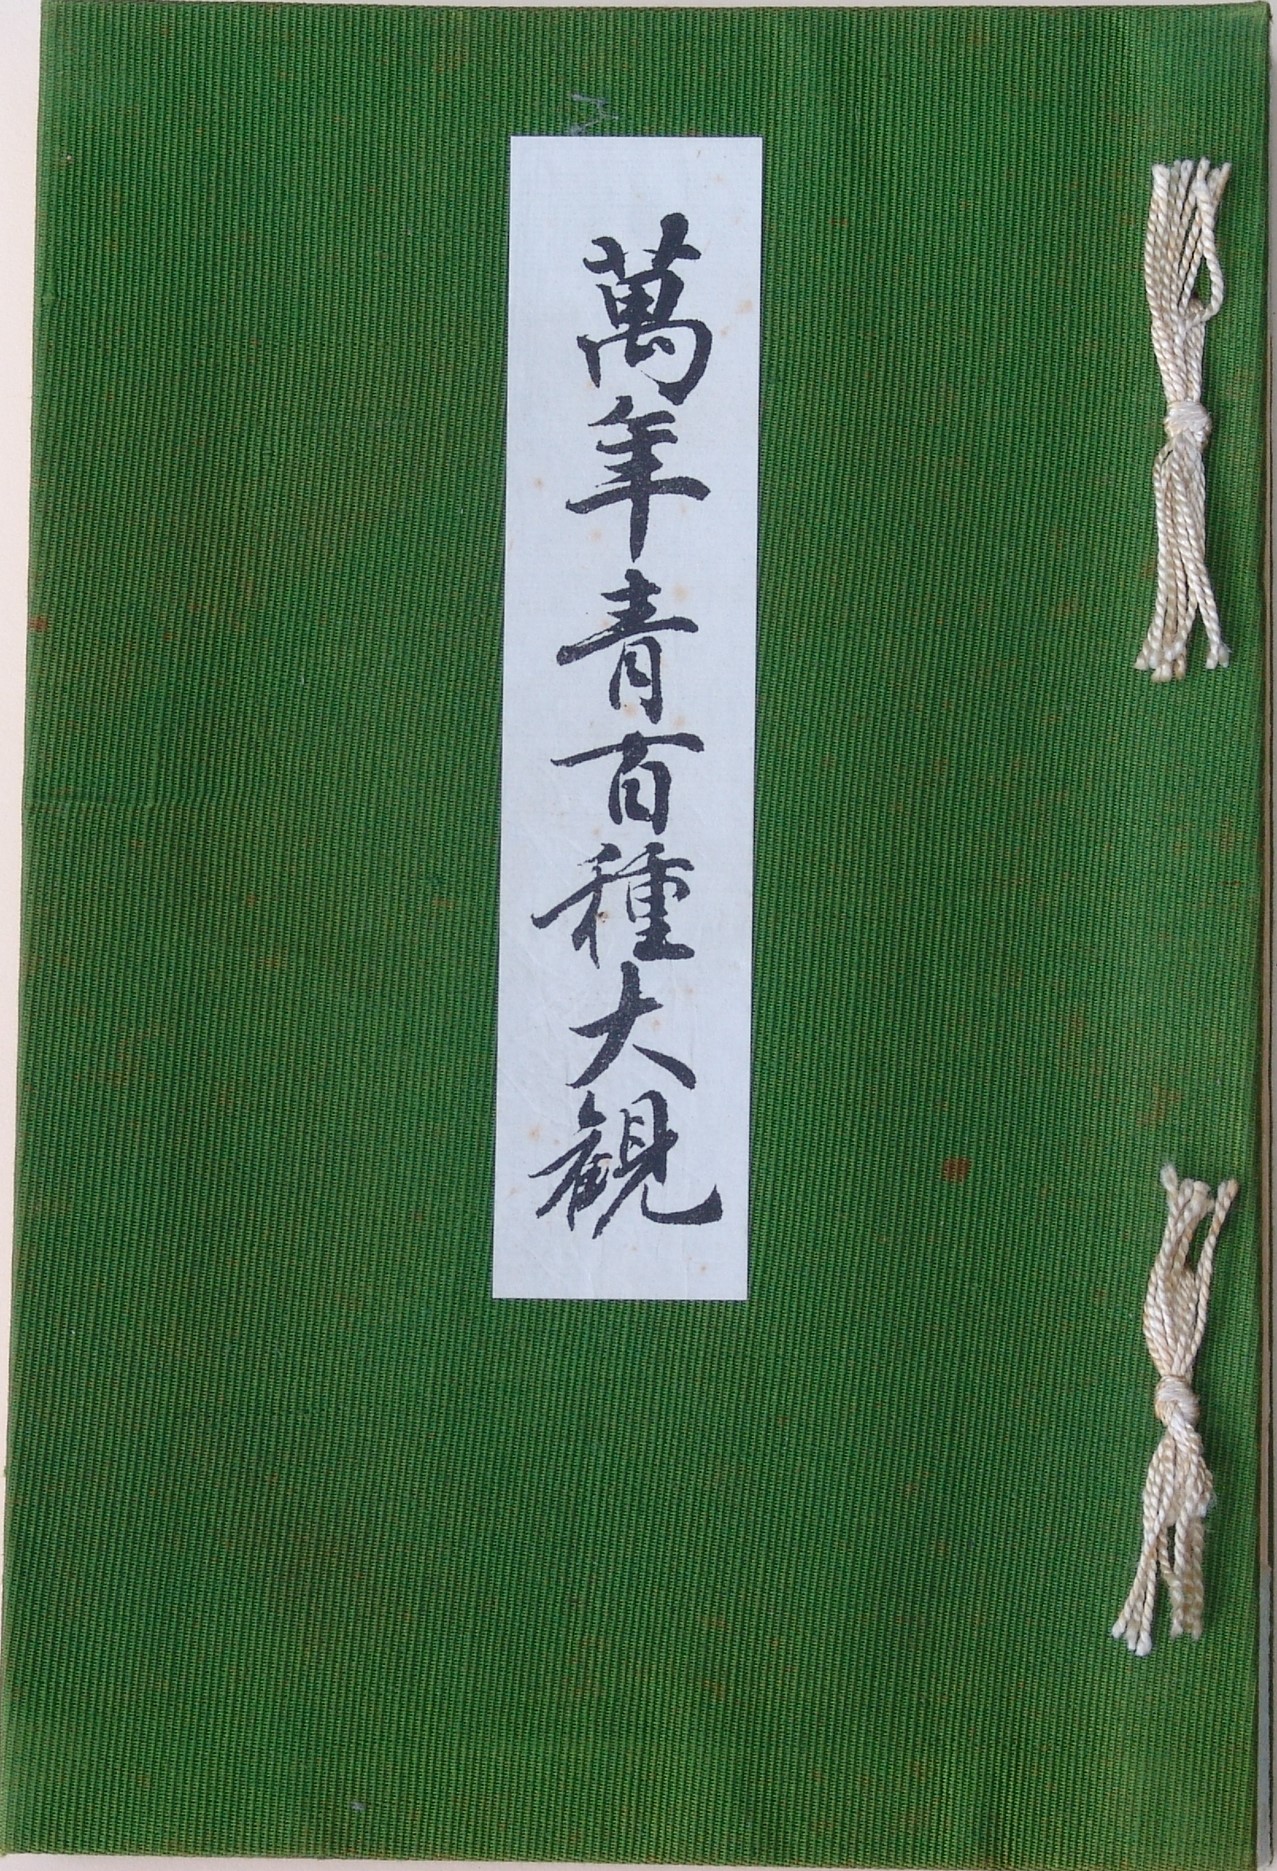 萬年青百種大観